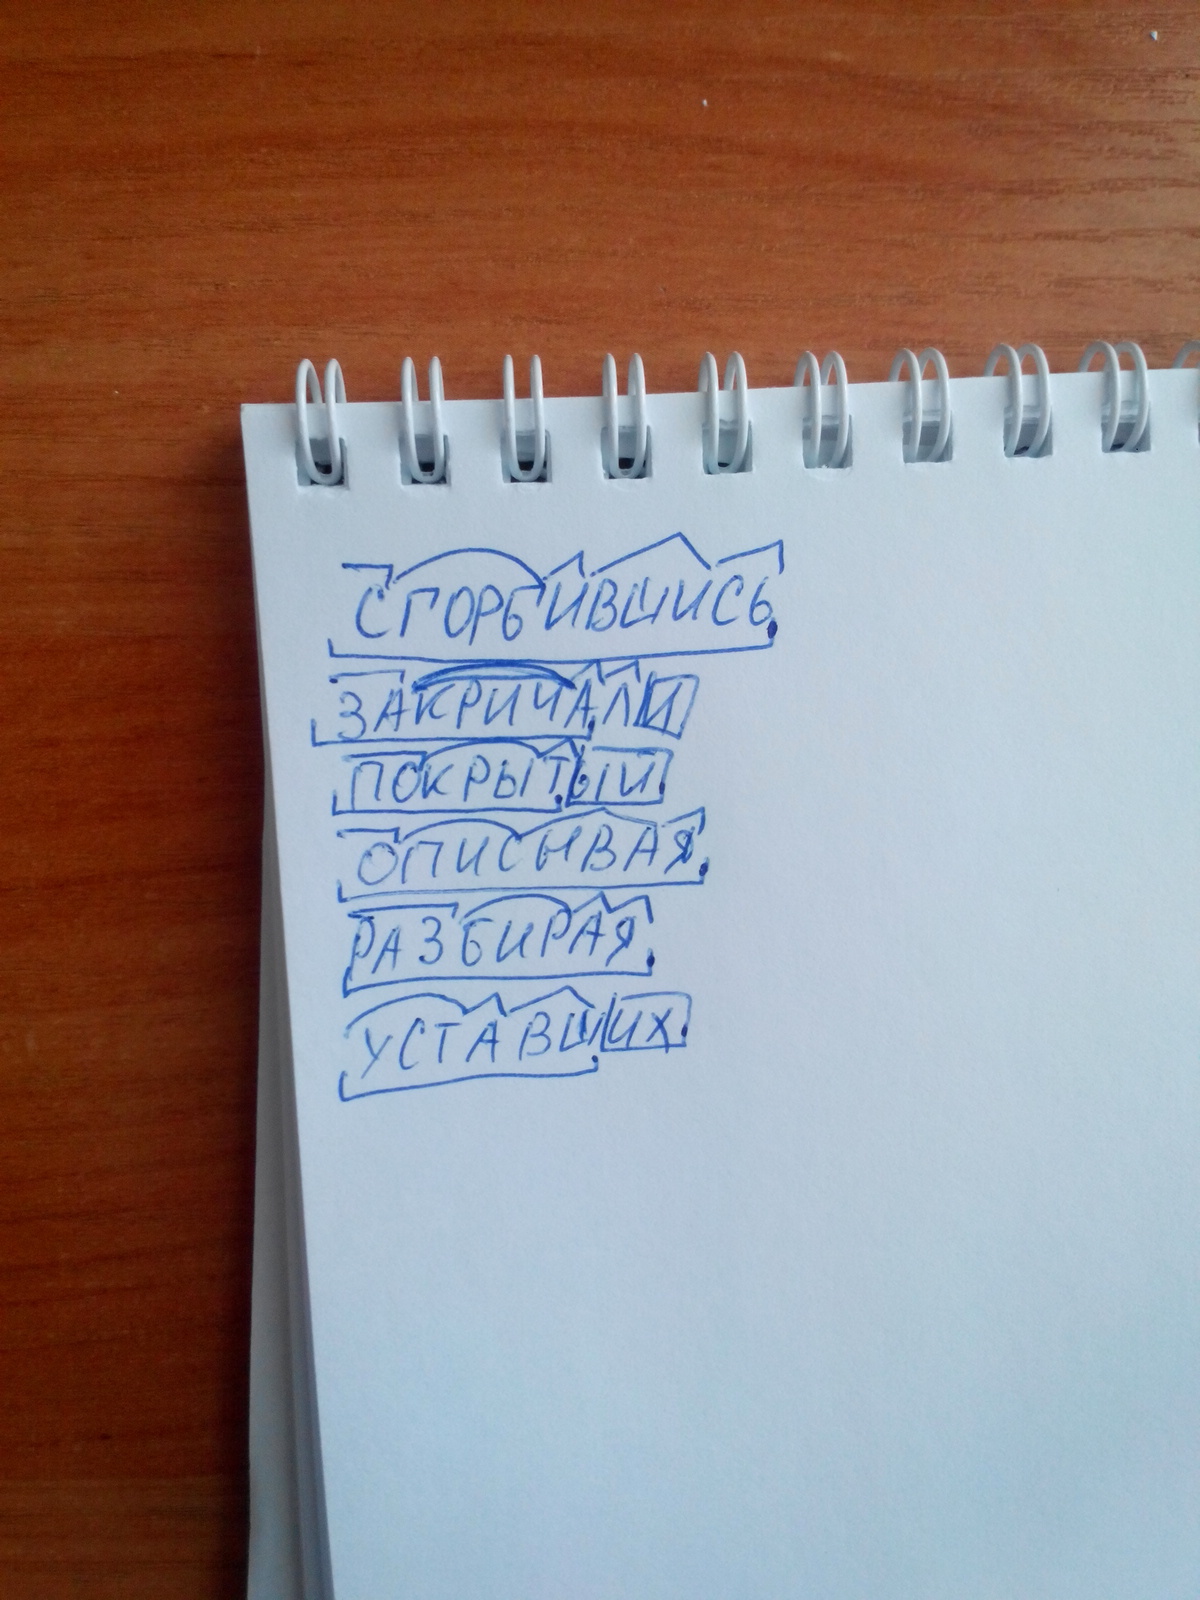 СГОРБИВШИСЬ
ЗАКРИЧАЛИ
ПОКРЫТЫЙ
ОПИСЫВАЯ
РАЗБИРАЯ
УСТАВШИХ